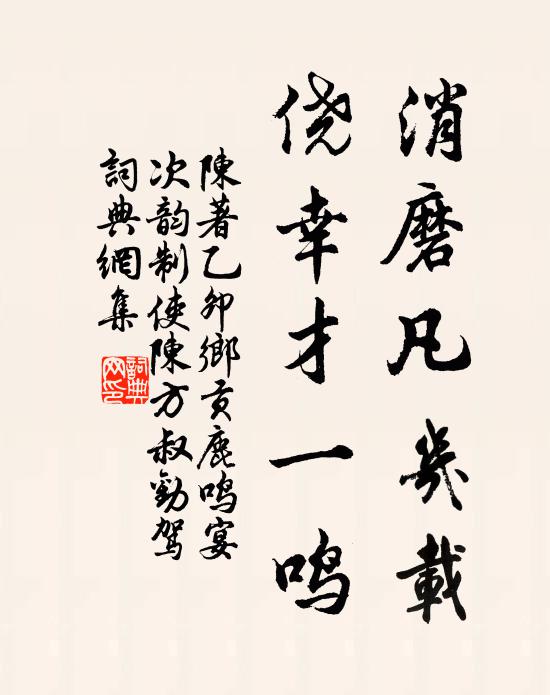 消磨凡幾載
侥幸才一鳴
陳著乙卯鄉貢鹿鳴宴
次韵制使陳方叔勸駕
詞典網集
詞典網印